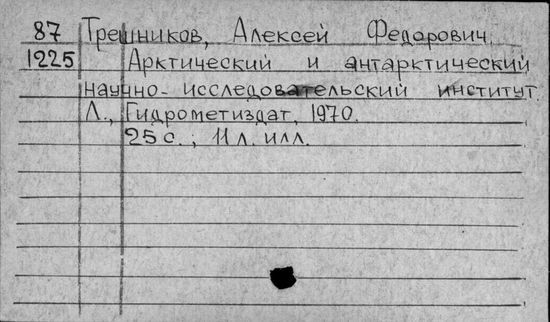 87 Трешников, Алексей Федорович
1225 Арктический и антарктический
научно-исследовательский институт.
Л., Гидрометиздат, 1970.
25 с.; 11 л. илл.